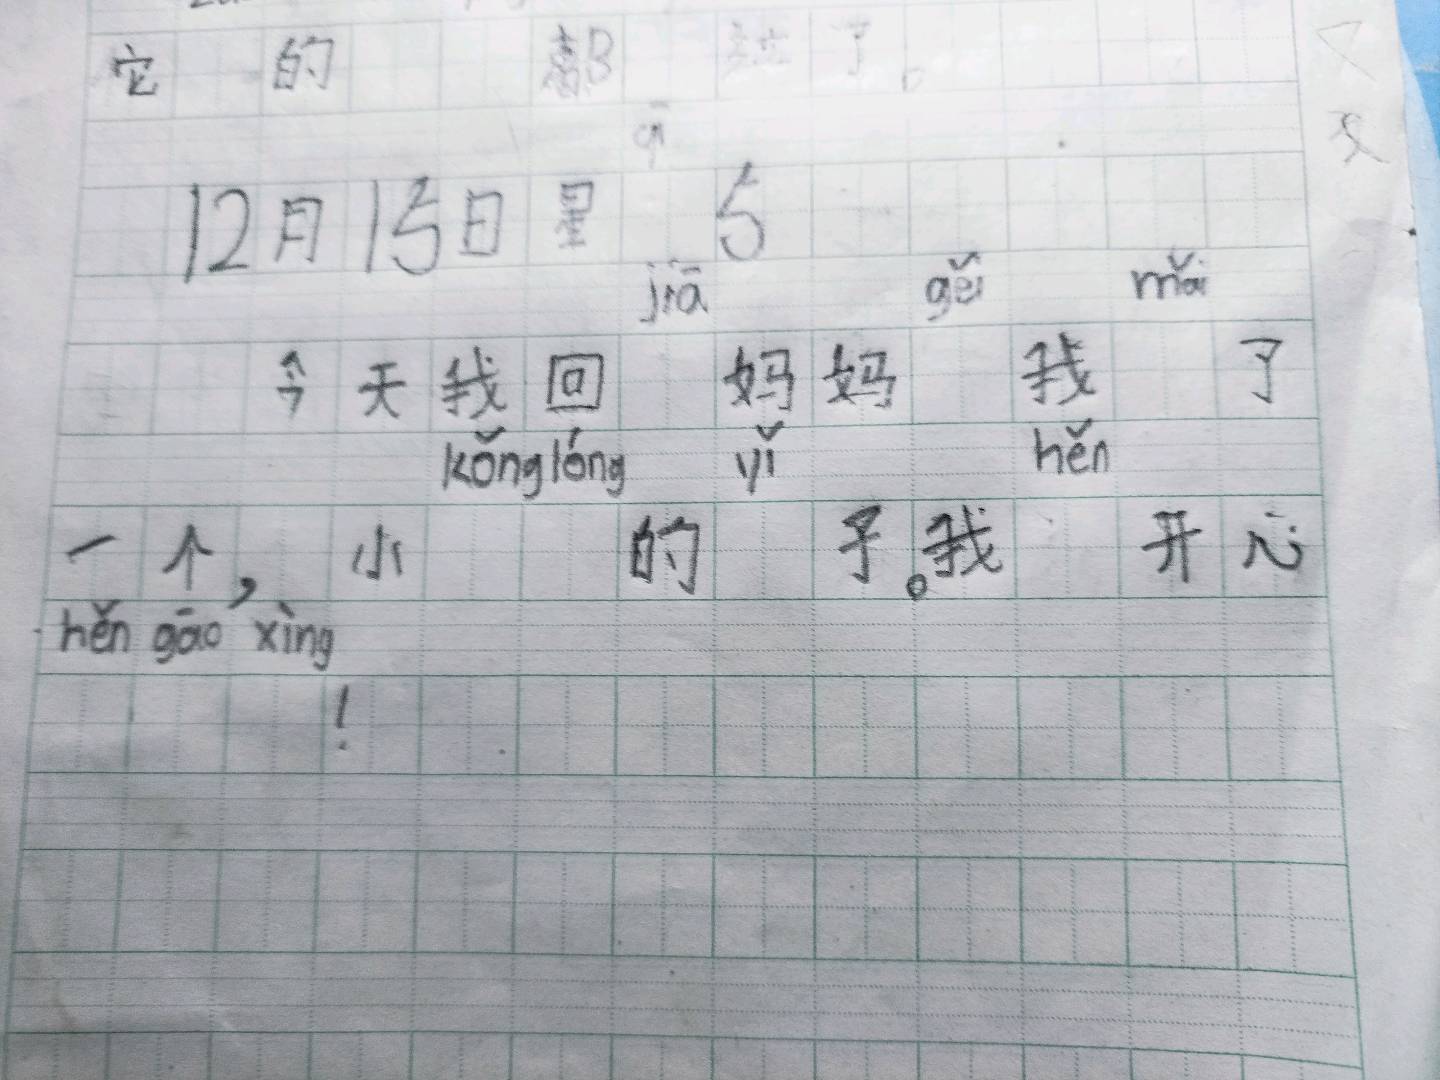 它 的 都 了。
qī
12月15日星 5
jiā gěi mǎi
今天我回 妈妈 我 了
kǒng lóng yǐ hěn
一个,小 的 子。我 开心
hěn gāo xìng
!